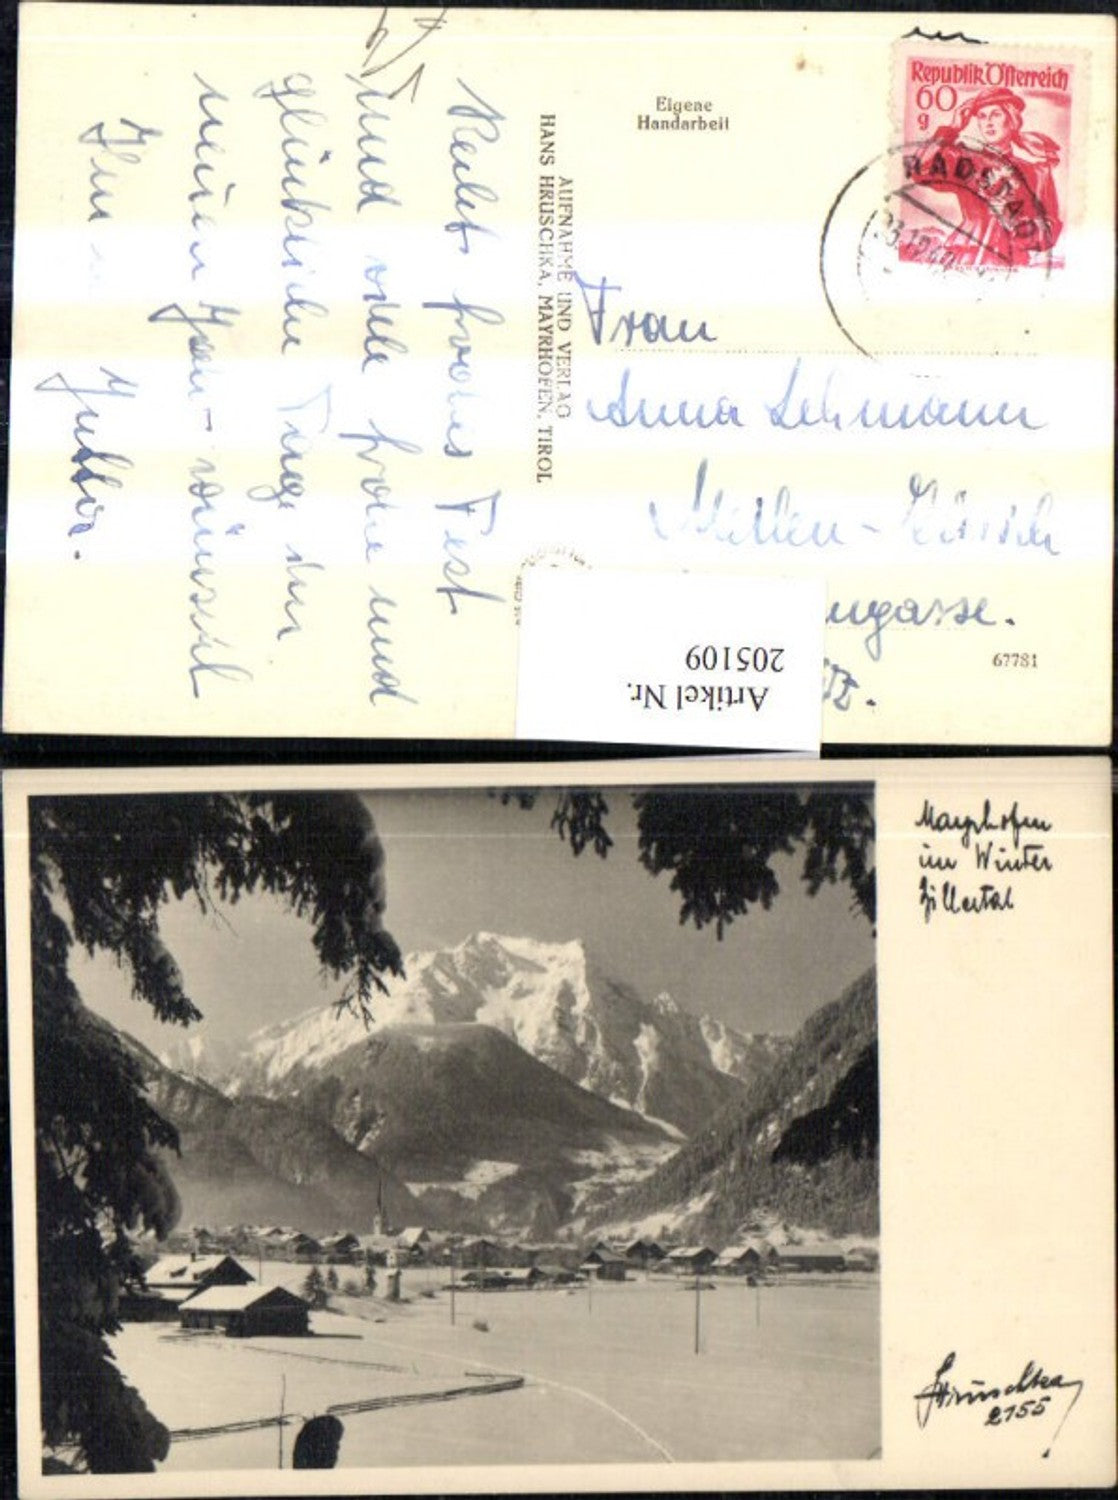 Republik Österreich
60
g
RADSTADT
Eigene
Handarbeit
AUFNAHME UND VERLAG
HANS HRUSCHKA, MAYRHOFEN, TIROL
Recht frohes Fest
und viele frohe und
glückliche Tage im
neuen Jahr wünscht
Ihn
Frau
Anna Lehmann
ngasse.
67781
Artikel Nr.
205109
Mayrhofen
im Winter
Zillertal
Hruschka
2155